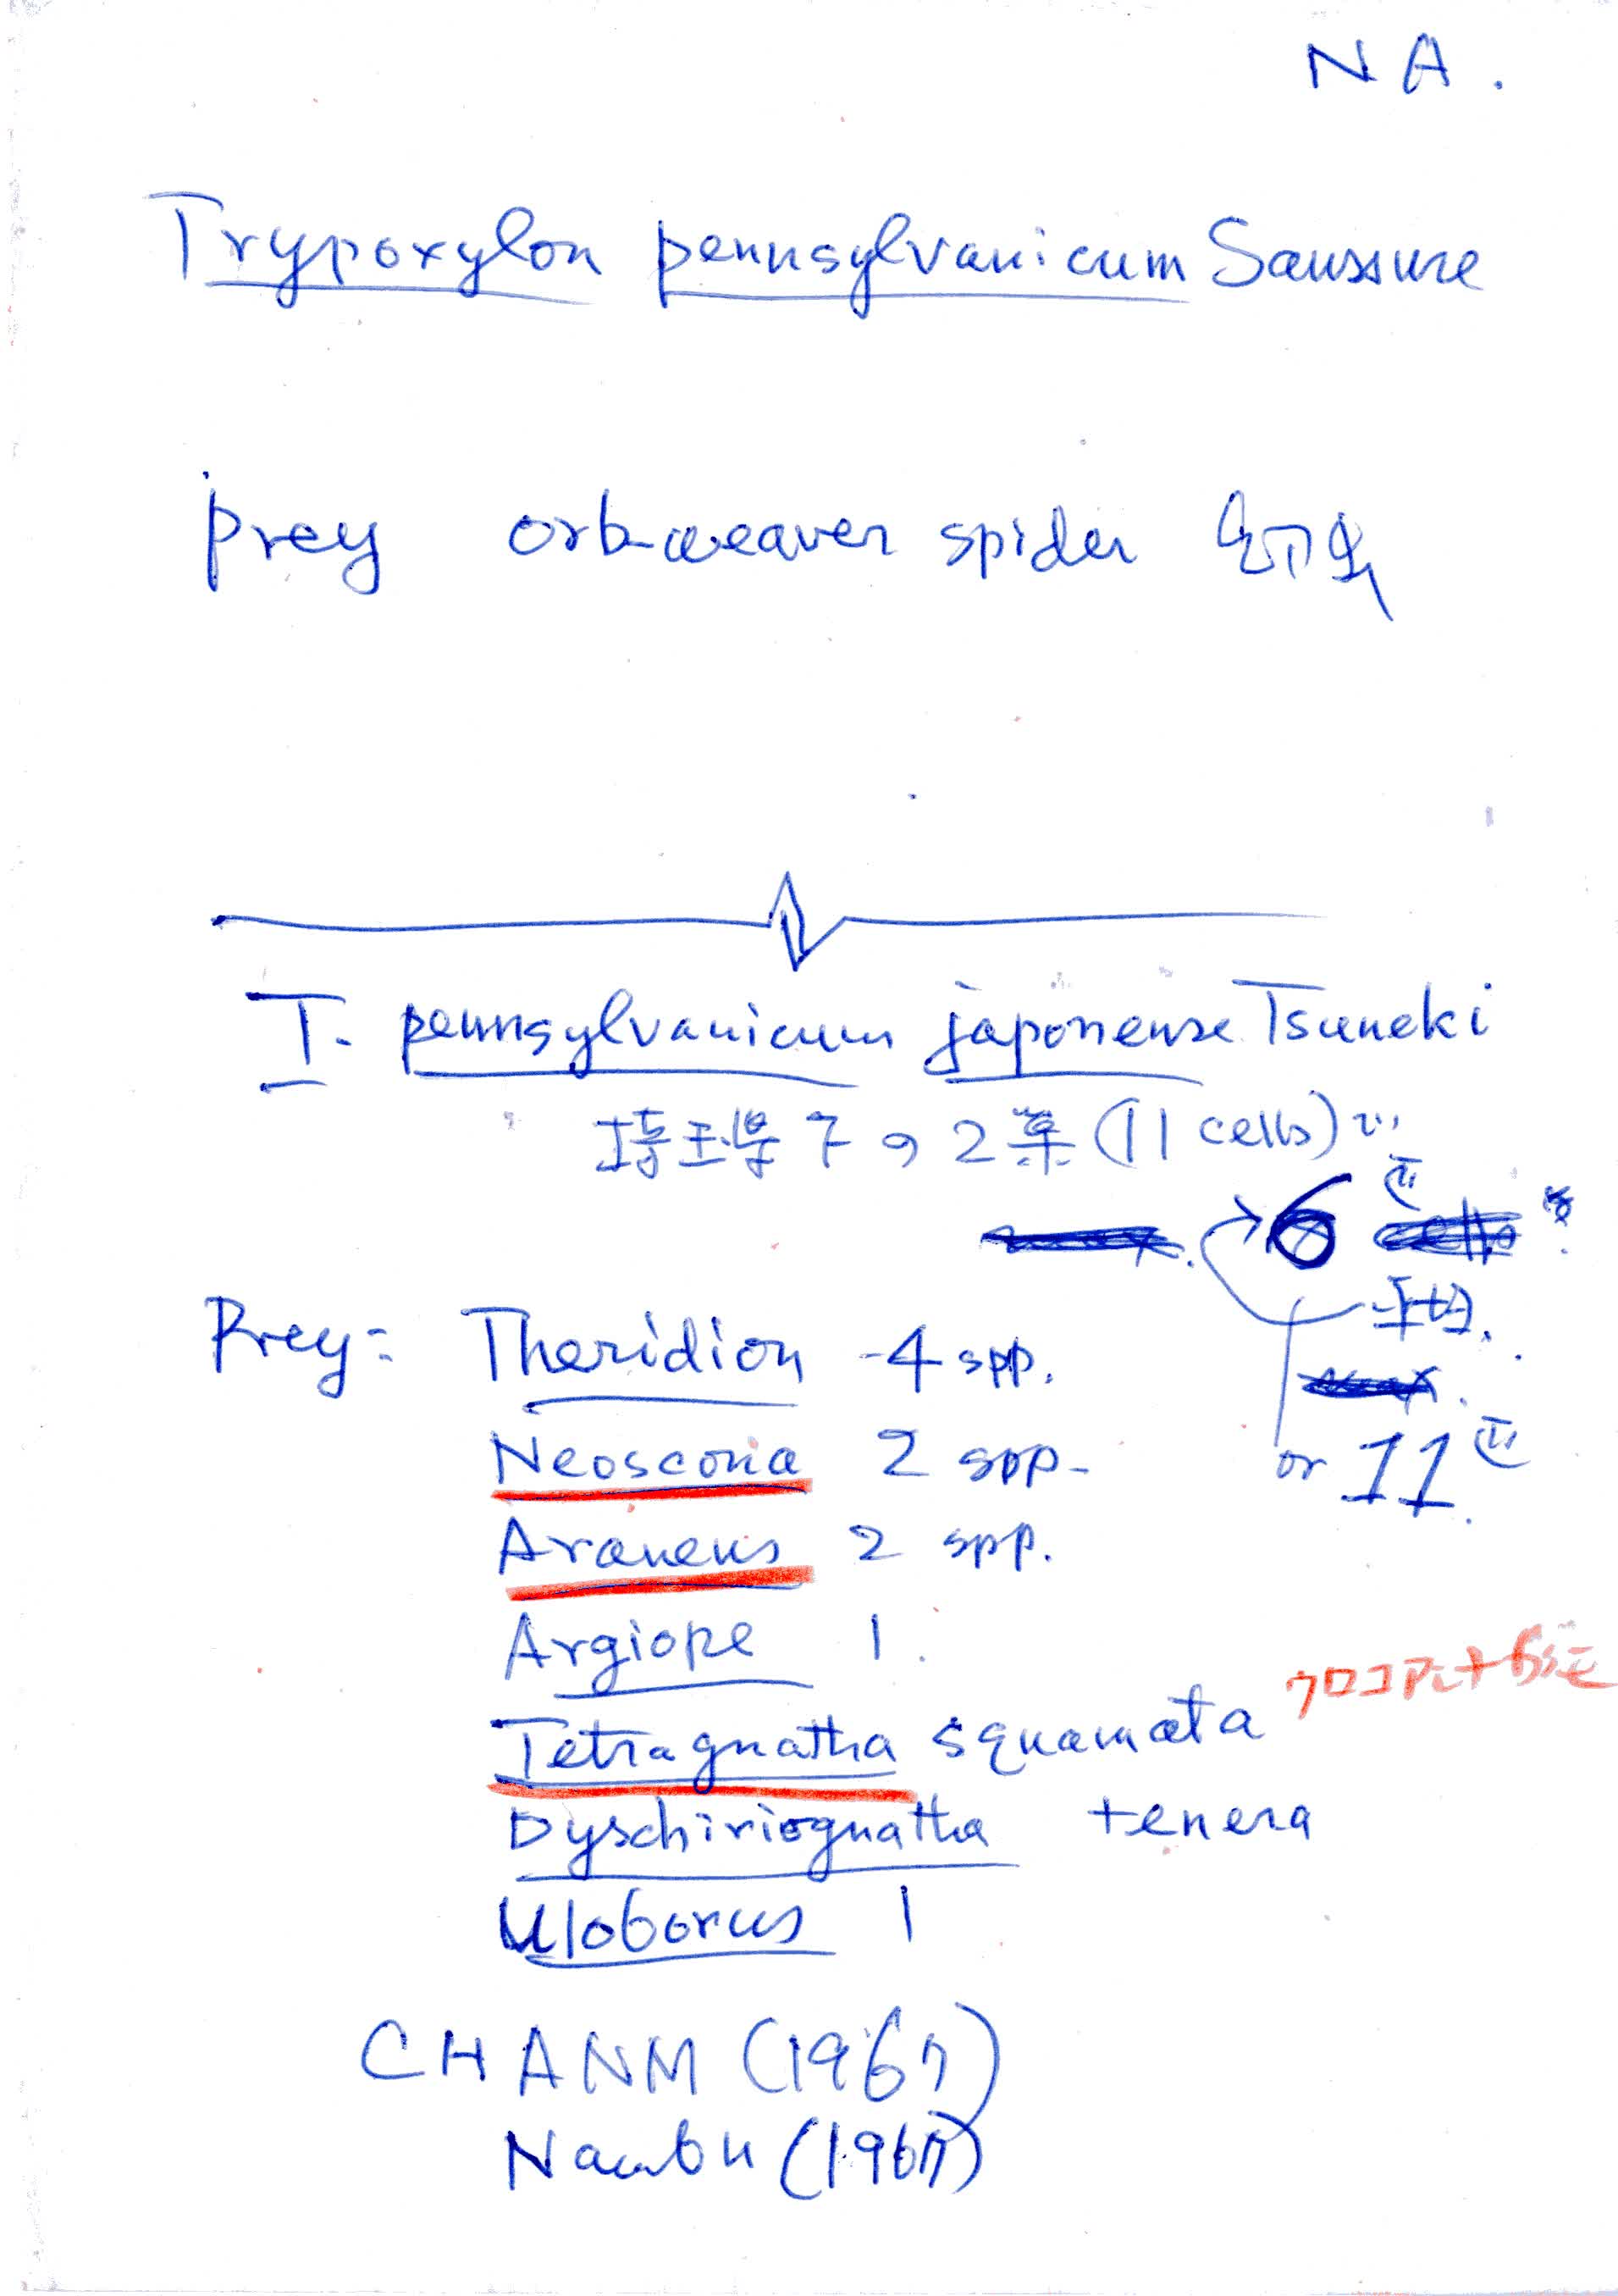 NA.
Trypoxylon pennsylvanicum Saussure
prey orb-weaver spider 幼虫
T. pennsylvanicum japonense Tsuneki
埼玉県 の 2巣 (11 cells) で
6
平均.
Prey: Theridion - 4 spp.
Neoscona 2 spp.
or 11
Araneus 2 spp.
Argiope 1.
Tetragnatha squamata
Dyschiriognatha tenera
Uloborus 1
CHANM (1967)
Nambu (1967)